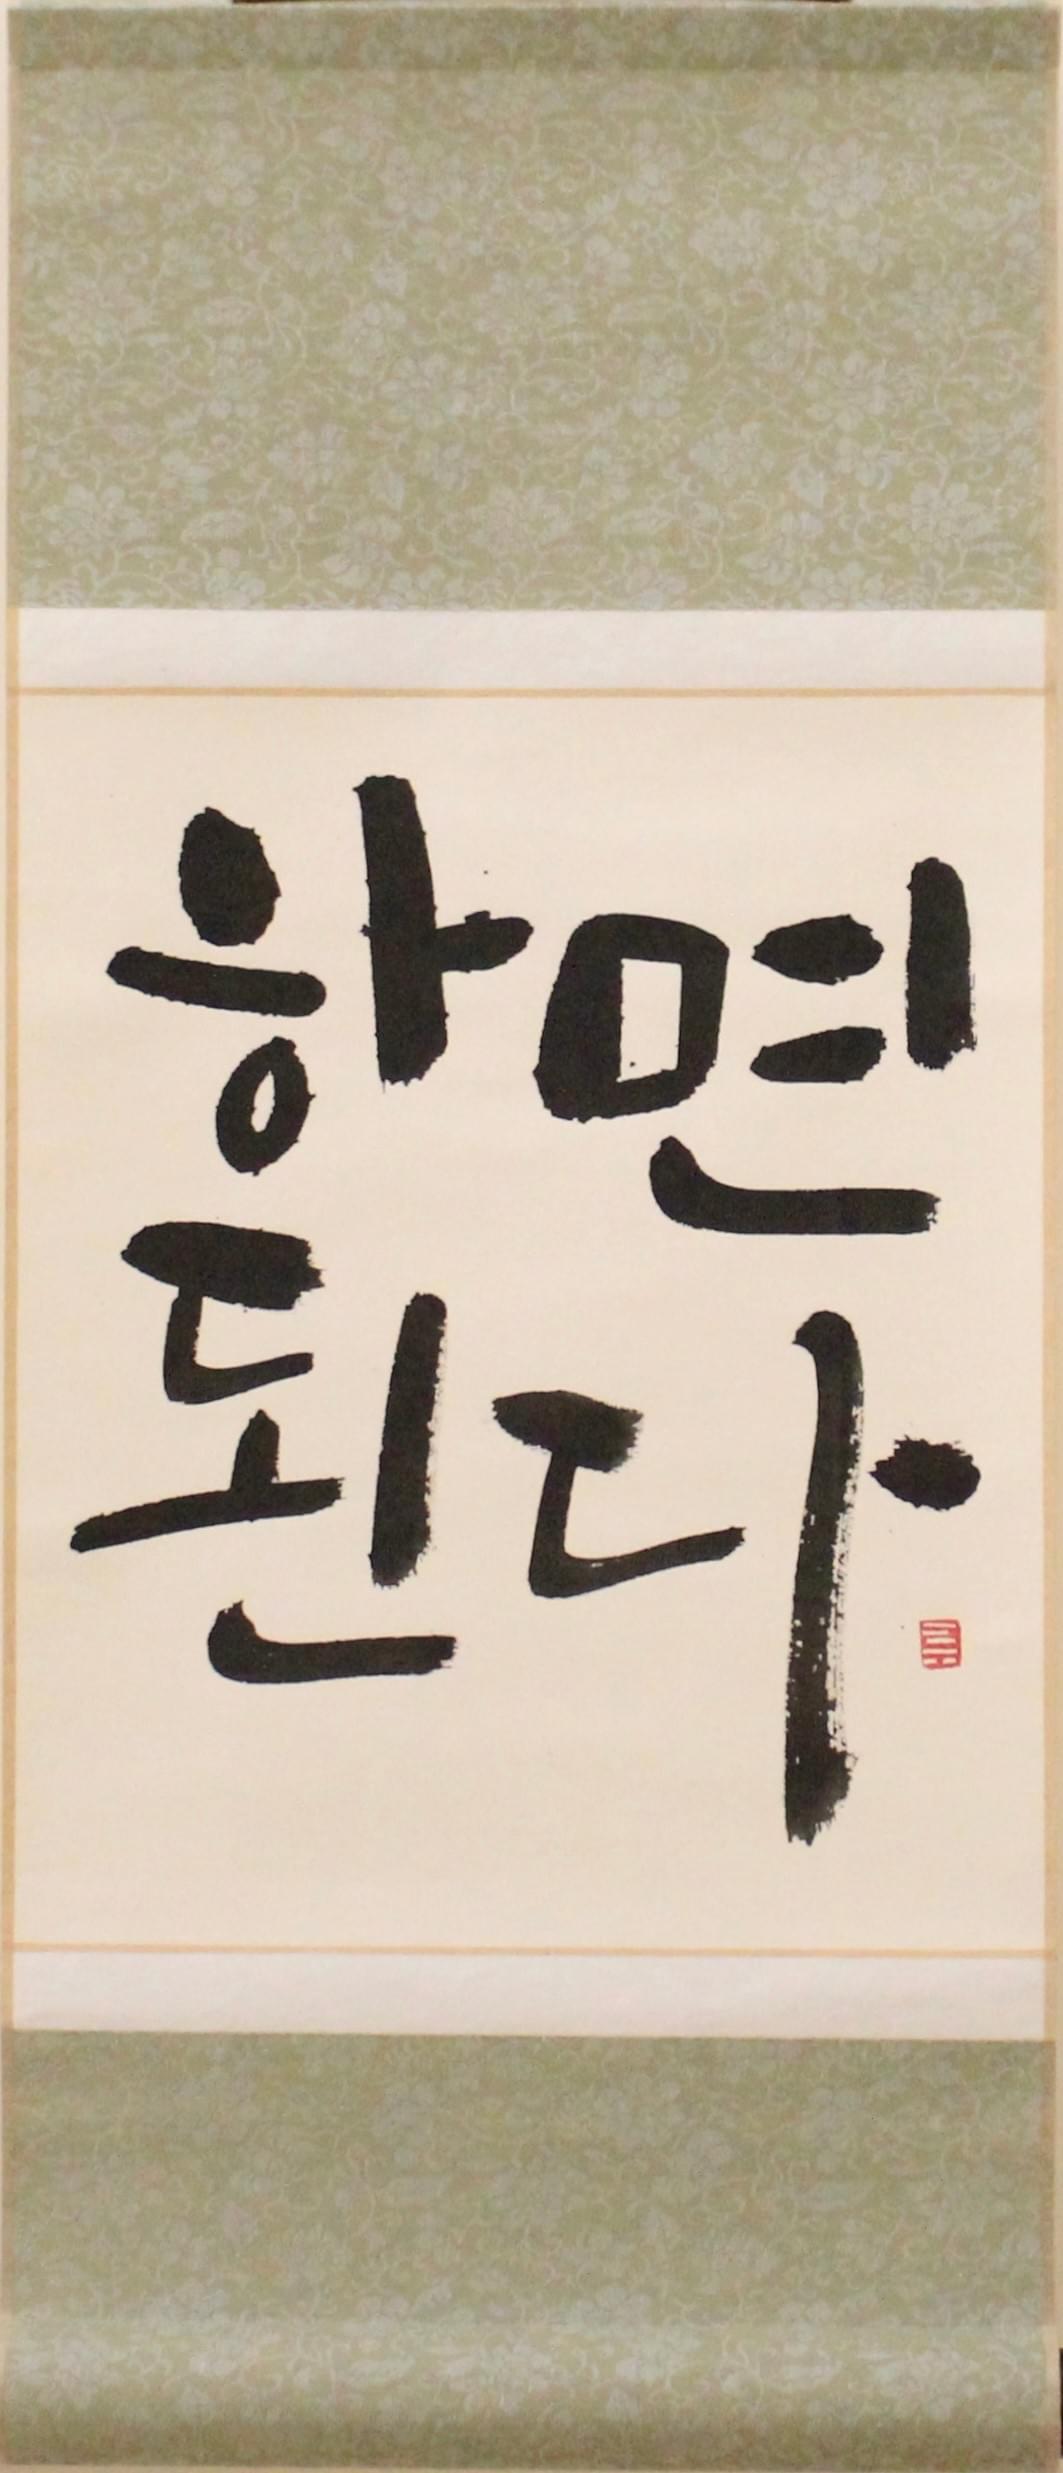 하면
된다